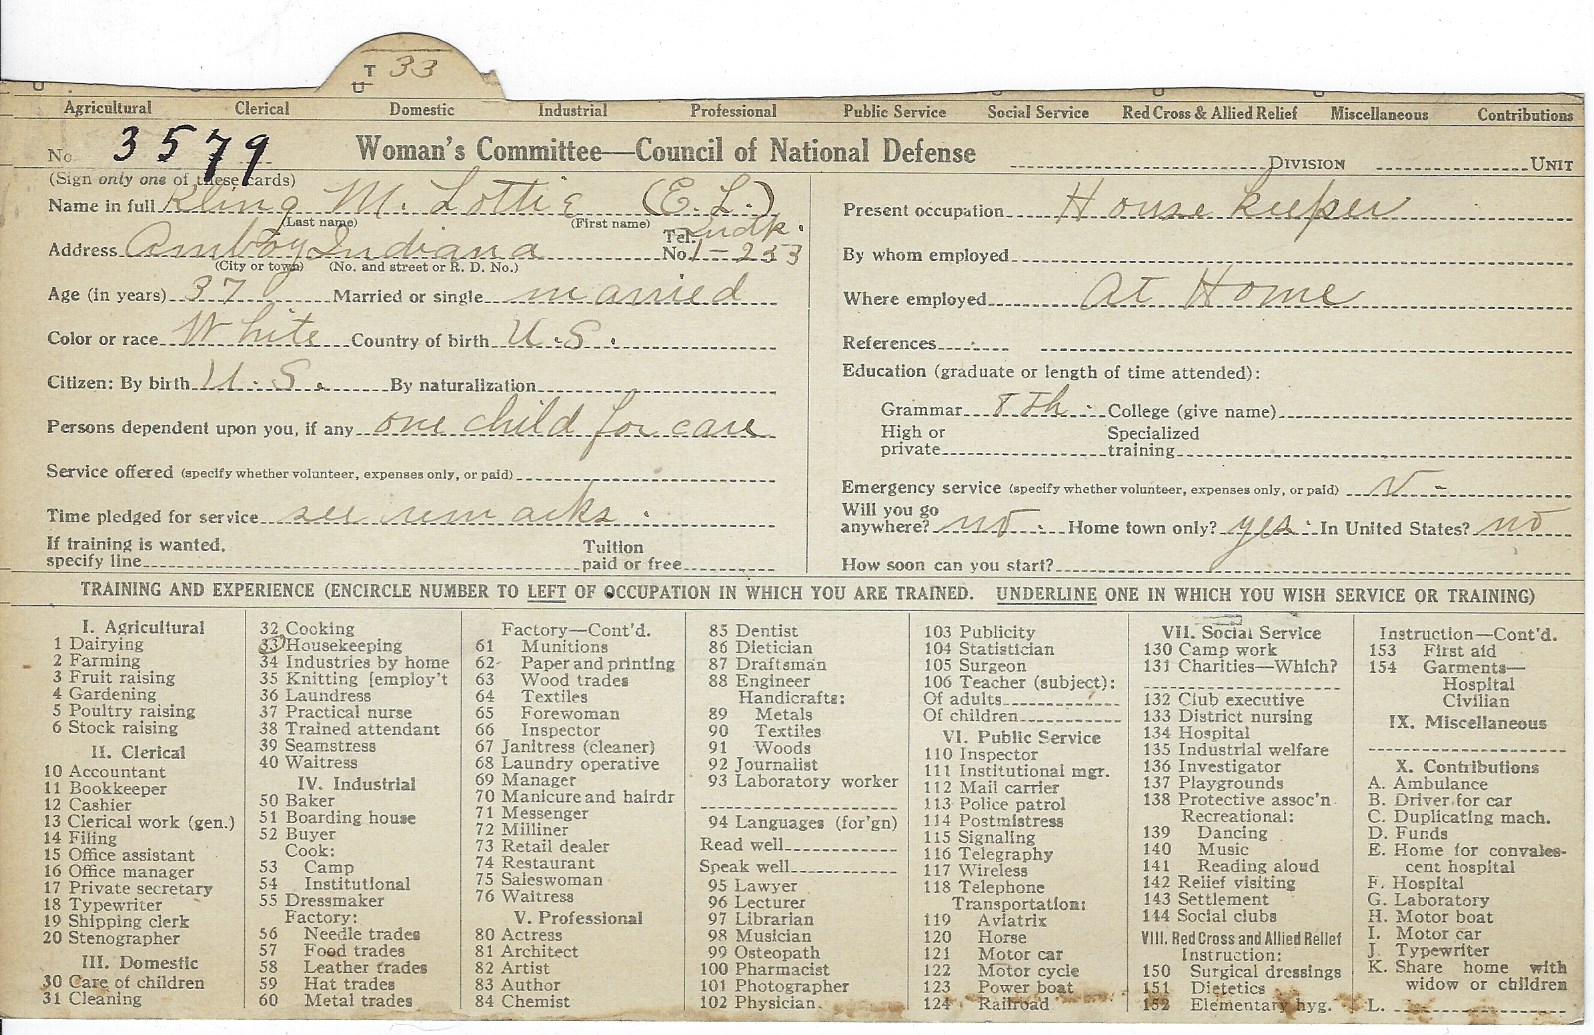 T 33
Agricultural Clerical Domestic Industrial Professional Public Service Social Service Red Cross & Allied Relief Miscellaneous Contributions
No. 3579 Woman's Committee—Council of National Defense DIVISION UNIT
(Sign only one of these cards)
Name in full Kling M. Lottie (E. L.)
(Last name) (First name)
Address Amboy Indiana Tel. No. Indk. 1-233
(City or town) (No. and street or R. D. No.)
Age (in years) 37 Married or single married
Color or race White Country of birth U.S.
Citizen: By birth U.S. By naturalization
Persons dependent upon you, if any one child for care
Service offered (specify whether volunteer, expenses only, or paid)
Time pledged for service see remarks.
If training is wanted, specify line Tuition paid or free
Present occupation House keeper
By whom employed
Where employed At Home
References
Education (graduate or length of time attended):
Grammar 8th. College (give name)
High or private Specialized training
Emergency service (specify whether volunteer, expenses only, or paid) V-
Will you go anywhere? no. Home town only? yes. In United States? no
How soon can you start?
TRAINING AND EXPERIENCE (ENCIRCLE NUMBER TO LEFT OF OCCUPATION IN WHICH YOU ARE TRAINED. UNDERLINE ONE IN WHICH YOU WISH SERVICE OR TRAINING)
I. Agricultural
1 Dairying
2 Farming
3 Fruit raising
4 Gardening
5 Poultry raising
6 Stock raising
II. Clerical
10 Accountant
11 Bookkeeper
12 Cashier
13 Clerical work (gen.)
14 Filing
15 Office assistant
16 Office manager
17 Private secretary
18 Typewriter
19 Shipping clerk
20 Stenographer
III. Domestic
30 Care of children
31 Cleaning
32 Cooking
33 Housekeeping
34 Industries by home
35 Knitting [employ't
36 Laundress
37 Practical nurse
38 Trained attendant
39 Seamstress
40 Waitress
IV. Industrial
50 Baker
51 Boarding house
52 Buyer
Cook:
53 Camp
54 Institutional
55 Dressmaker
Factory:
56 Needle trades
57 Food trades
58 Leather trades
59 Hat trades
60 Metal trades
Factory—Cont'd.
61 Munitions
62 Paper and printing
63 Wood trades
64 Textiles
65 Forewoman
66 Inspector
67 Janitress (cleaner)
68 Laundry operative
69 Manager
70 Manicure and hairdr
71 Messenger
72 Milliner
73 Retail dealer
74 Restaurant
75 Saleswoman
76 Waitress
V. Professional
80 Actress
81 Architect
82 Artist
83 Author
84 Chemist
85 Dentist
86 Dietician
87 Draftsman
88 Engineer
Handicrafts:
89 Metals
90 Textiles
91 Woods
92 Journalist
93 Laboratory worker
94 Languages (for'gn)
Read well
Speak well
95 Lawyer
96 Lecturer
97 Librarian
98 Musician
99 Osteopath
100 Pharmacist
101 Photographer
102 Physician
103 Publicity
104 Statistician
105 Surgeon
106 Teacher (subject):
Of adults
Of children
VI. Public Service
110 Inspector
111 Institutional mgr.
112 Mail carrier
113 Police patrol
114 Postmistress
115 Signaling
116 Telegraphy
117 Wireless
118 Telephone
Transportation:
119 Aviatrix
120 Horse
121 Motor car
122 Motor cycle
123 Power boat
124 Railroad
VII. Social Service
130 Camp work
131 Charities—Which?
132 Club executive
133 District nursing
134 Hospital
135 Industrial welfare
136 Investigator
137 Playgrounds
138 Protective assoc'n
Recreational:
139 Dancing
140 Music
141 Reading aloud
142 Relief visiting
143 Settlement
144 Social clubs
VIII. Red Cross and Allied Relief
Instruction:
150 Surgical dressings
151 Dietetics
152 Elementary hyg.
Instruction—Cont'd.
153 First aid
154 Garments—
Hospital
Civilian
IX. Miscellaneous
X. Contributions
A. Ambulance
B. Driver for car
C. Duplicating mach.
D. Funds
E. Home for convales-
cent hospital
F. Hospital
G. Laboratory
H. Motor boat
I. Motor car
J. Typewriter
K. Share home with
widow or children
L.